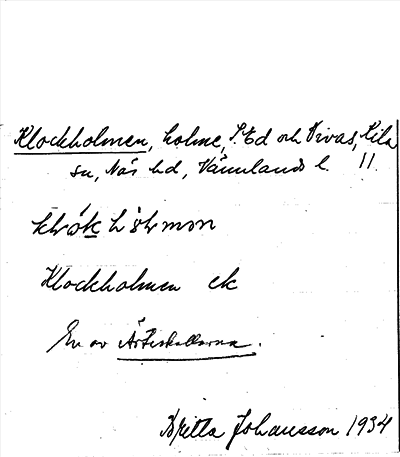 Klockholmen, holme, S. Ed och Vivas, Kila
sn, Näs hd, Värmlands l. 11.
Klockholmen ek
En av Ärtiskullarna.
Britta Johansson 1934